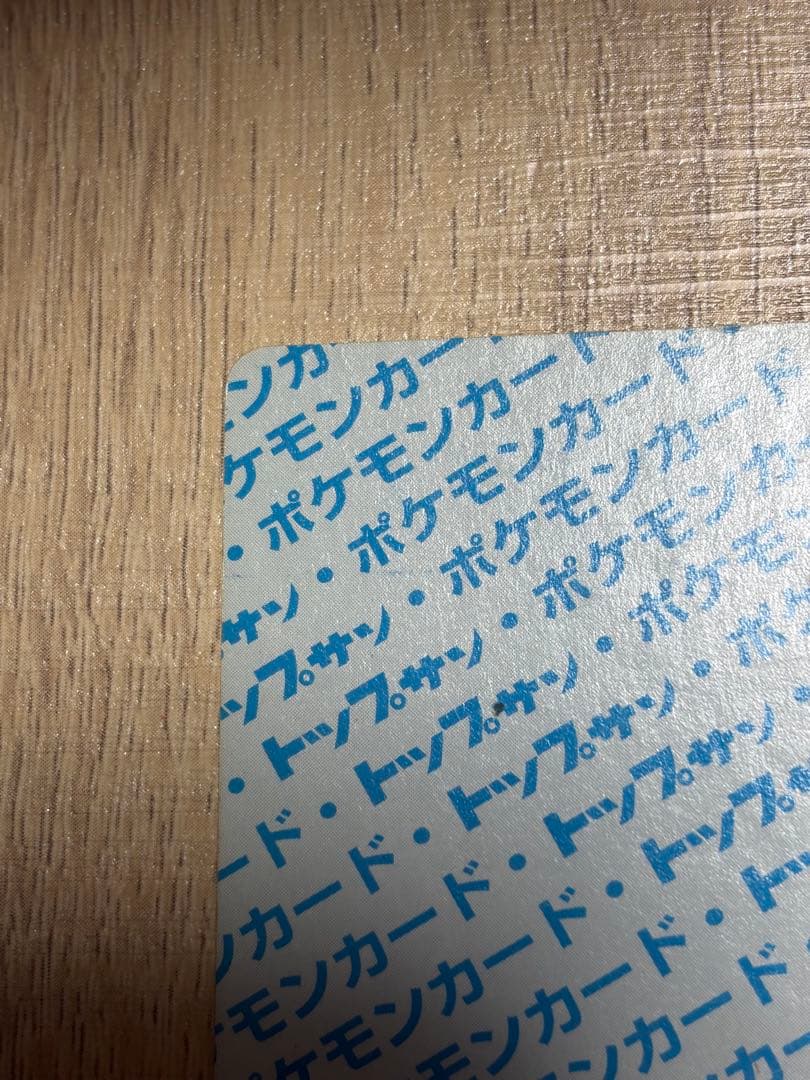 ンカー
ケモンカード
・ポケモンカード
サン・ポケモンカード・
ップサン・ポケモンカード
・トップサン・ポケモンカ
ード・トップサン・ポケモン
ンカード・トップサン・ポケ
モンカード・トップサン・
ポケモンカード・トップサ
モンカード・トッ
ンカード・